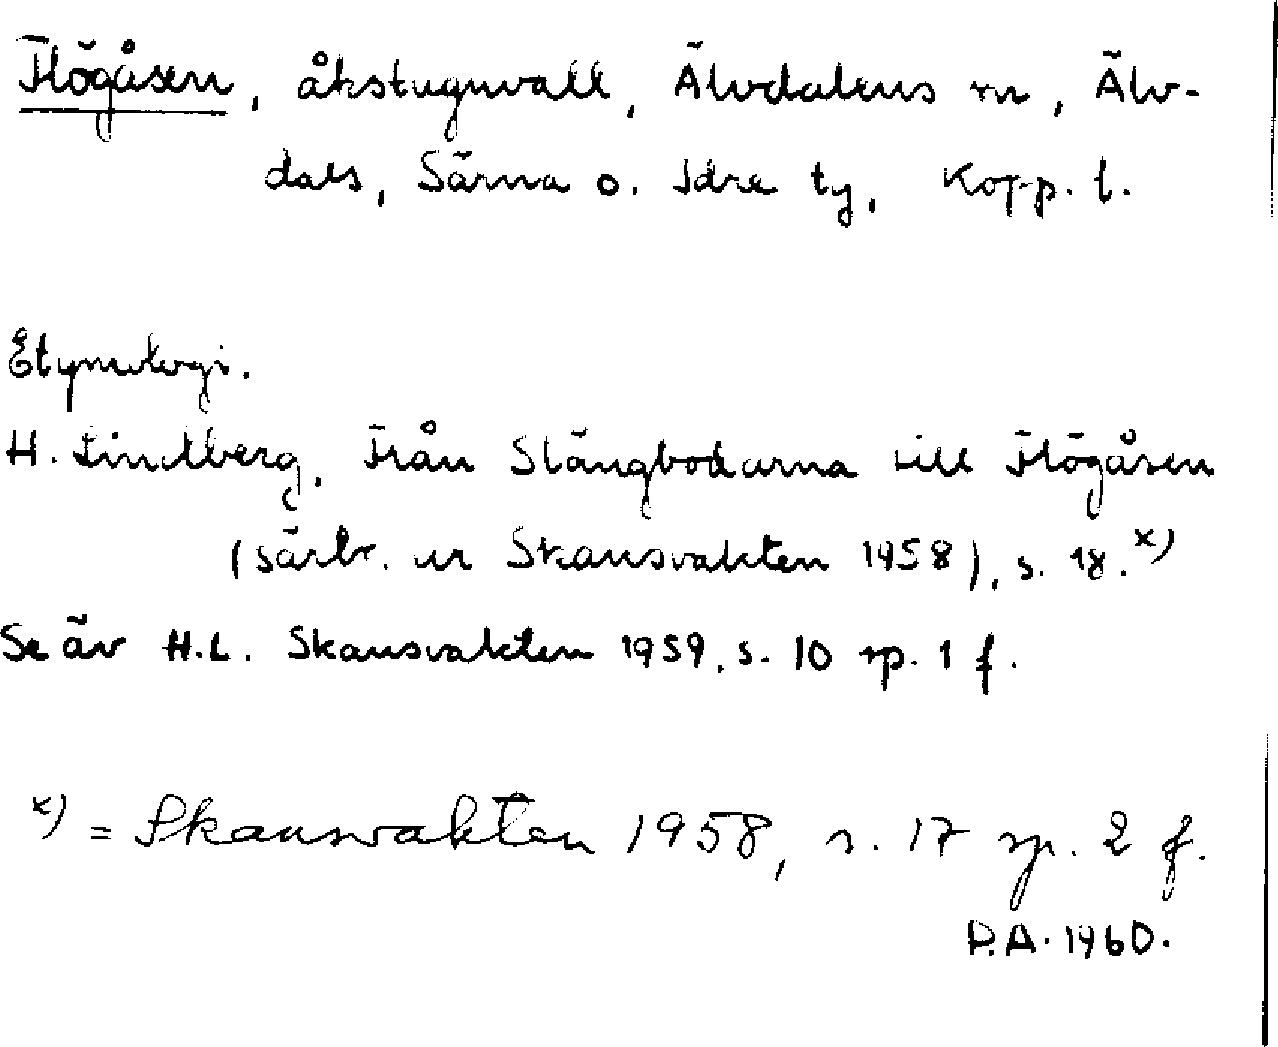 Flögåsen, åkstugnvall, Älvdalens sn, Älv-
dals, Särna o. Idre tg, Kopp. l.
Etymologi.
H. Lindberg, Från Slängbodarna till Flögåsen
(särtr. ur Skansvakten 1958), s. 18. x)
Se äv H.L. Skansvakten 1959, s. 10 sp. 1 f.
x) = Skansvakten 1958, s. 17 sp. 2 f.
P.A. 1960.